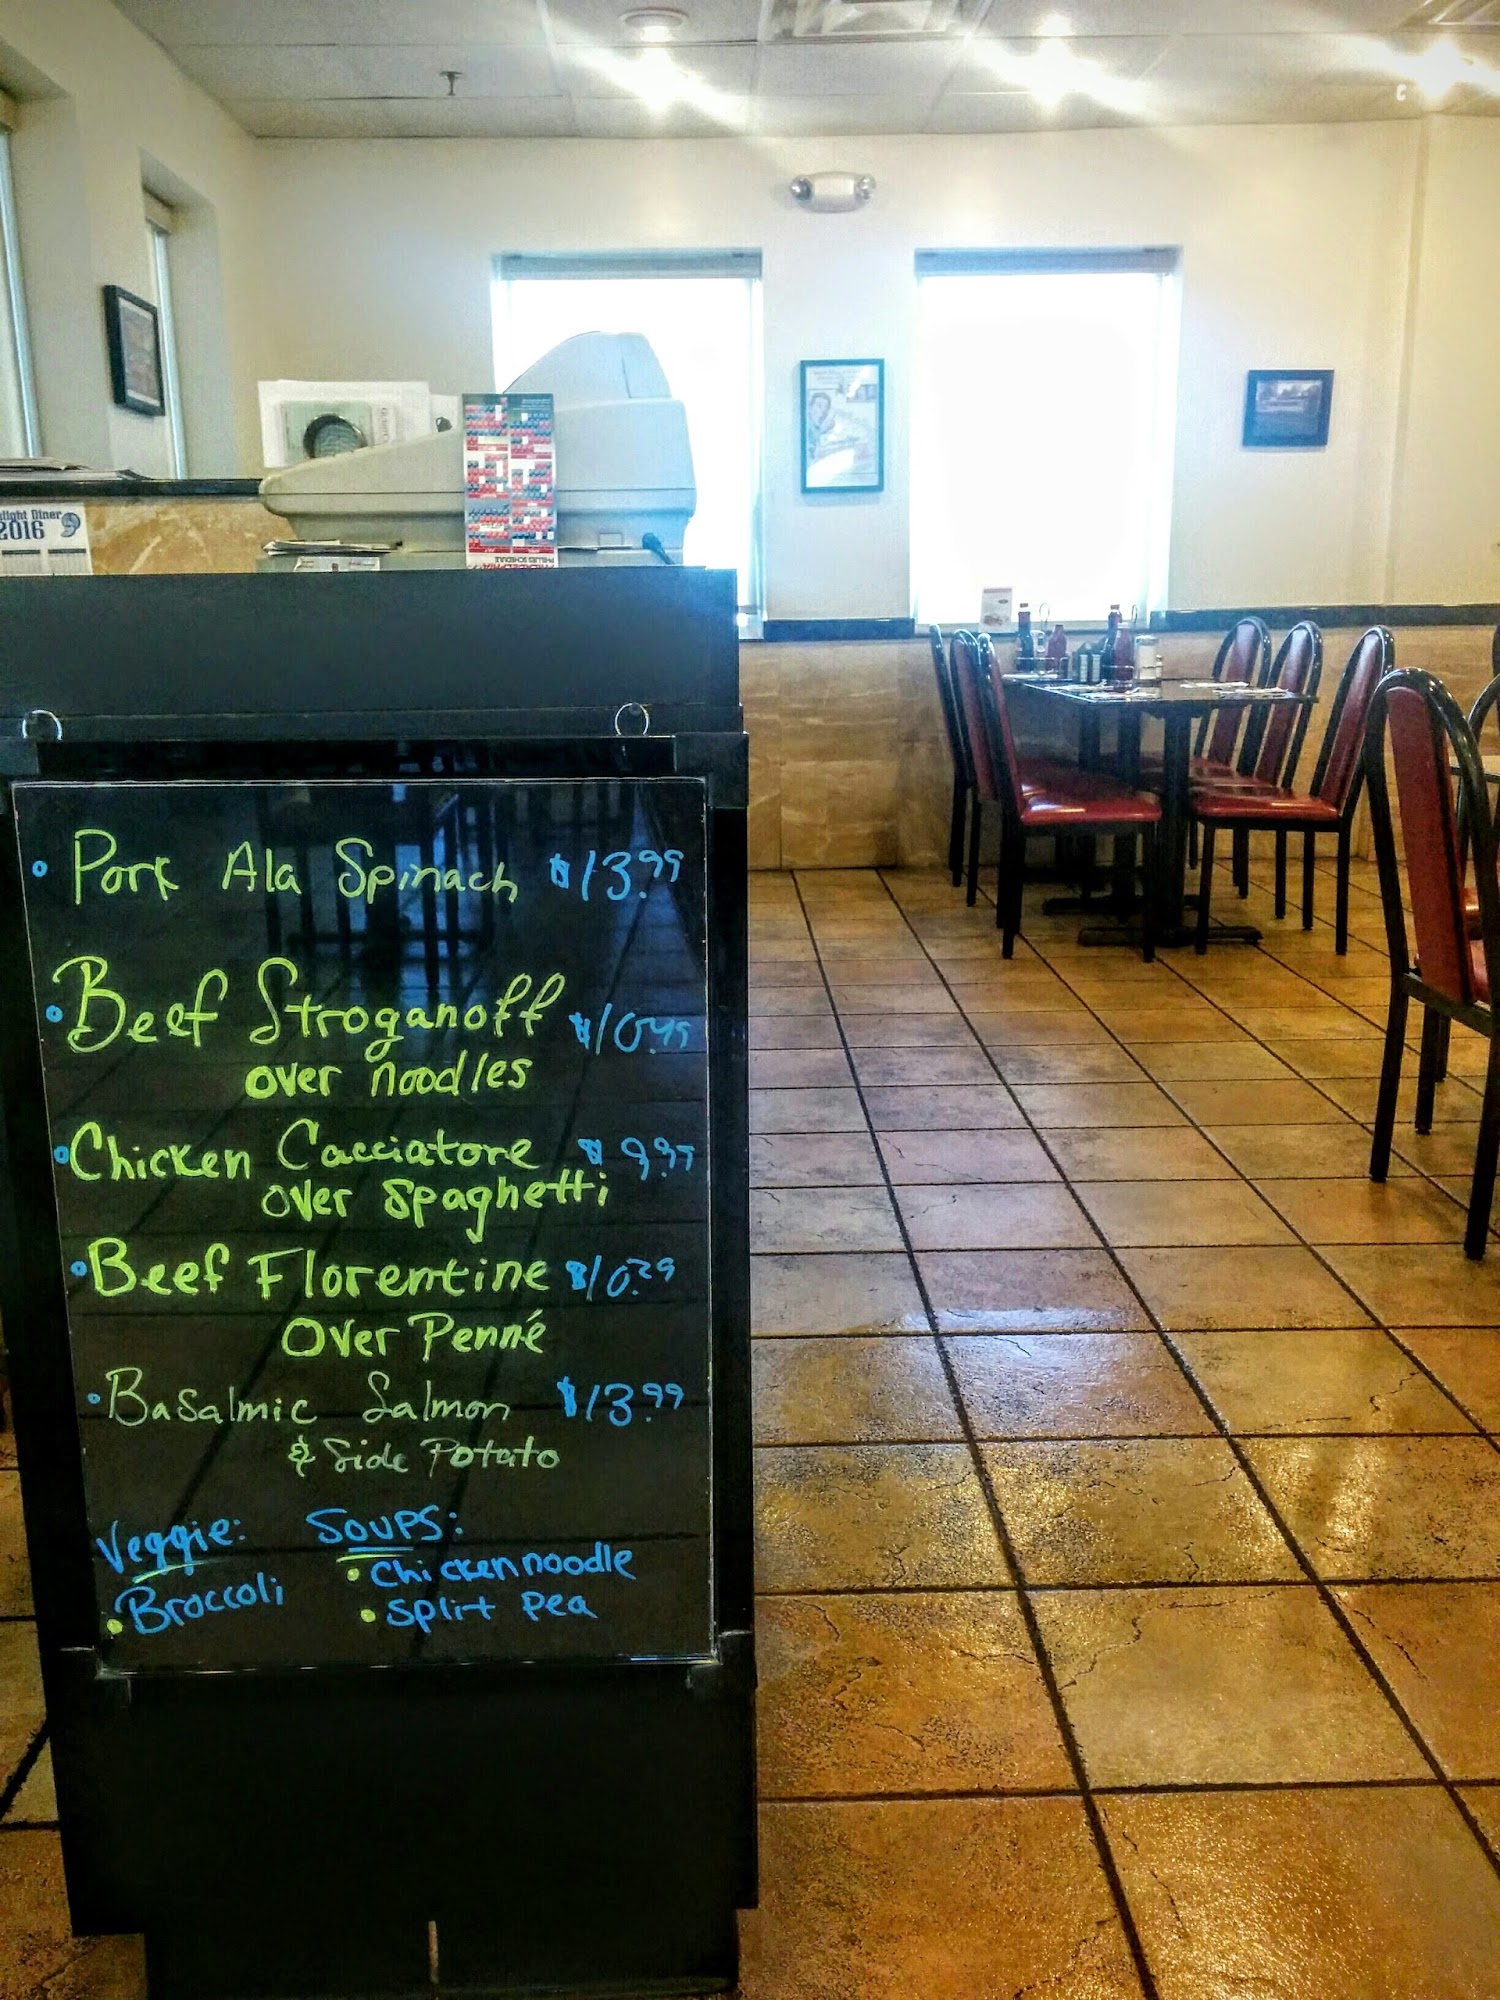 light Diner
2016
PHILLIES SCHEDULE
• Pork Ala Spinach $13.99
• Beef Stroganoff
over noodles
• Chicken Cacciatore
over Spaghetti
• Beef Florentine
Over Penné
• Basalmic Salmon $13.99
& Side Potato
Veggie: Soups:
• Chicken noodle
• Broccoli
• Split Pea